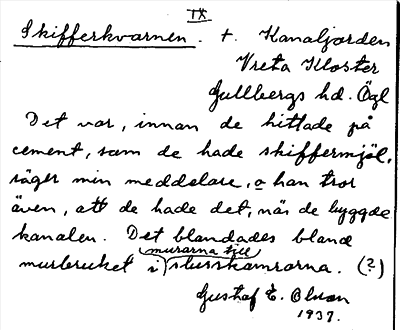 IX
Skifferkvarnen. t. Kanaljorden
Vreta Kloster
Gullbergs hd. Ögl
Det var, innan de hittade på
cement, som de hade skiffermjöl,
säger min meddelare, o han tror
även, att de hade det, när de byggde
kanalen. Det blandades bland
murarna till
murbruket i slusskamrarna. (?)
Gustaf E. Olsson
1937.